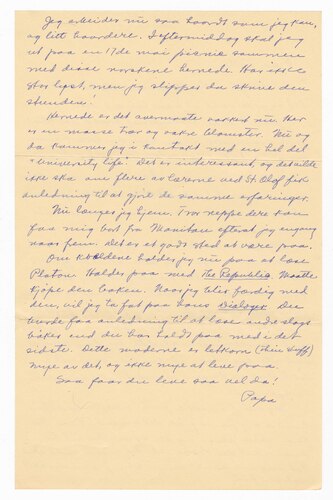 Jeg arbeider nu saa haardt som jeg kan,
og litt haardere. I eftermiddag skal jeg
ut paa en 17de mai picnic sammen
med disse norskene hernede. Har ikke
stor lyst, men jeg slipper da skinne den
stunden!
Hernede er det overmaate vakkert nu. Her
er en masse trær og vakre blomster. Nu og
da kommer jeg i kontakt med en hel del
"University life". Det er interessant, og det vilde
ikke ska om flere av lærerne ved St. Olaf fik
anledning til at gjøre de samme erfaringer.
Nu lenges jeg hjem. Tror neppe dere kan
faa mig bort fra Manitou efterat jeg engang
naar frem. Det er et godt sted at være paa.
Om kveldene holder jeg nu paa at læse
Platon. Holder paa med The Republic. Maatte
kjøpe den boken. Naar jeg blir færdig med
den, vil jeg ta fat paa hans Dialoger. Du
burde faa anledning til at læse andre slags
bøker end du har holdt paa med i det
sidste. Dette moderne er letkom (thin stuff)
mye av det, og ikke mye at leve paa.
Saa faar du leve saa vel da!
Papa